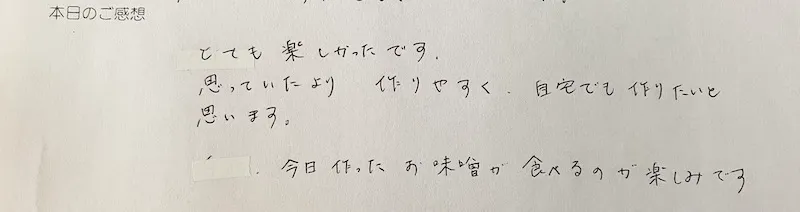 本日のご感想
とても楽しかったです.
思っていたより 作りやすく. 自宅でも作りたいと
思います。
. 今日作ったお味噌が食べるのが楽しみです